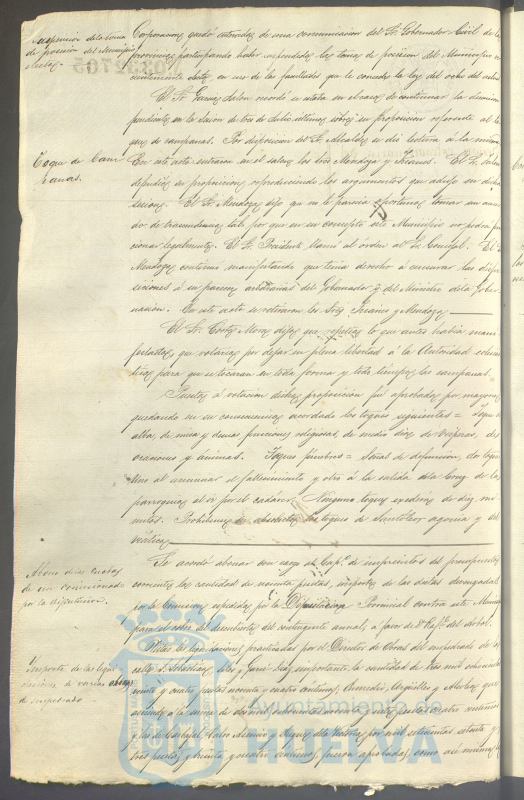 Suspension de la toma
de posesion del Municipio
electo.
Corporacion quedó enterada de una comunicacion del Sr. Gobernador Civil de la
provincia participando haber suspendido las tomas de posesion del Municipio re-
cientemente electo en uso de las facultades que le concede la ley del ocho del actual
El Sr. Garcia Salon recordó se estaba en el caso de continuar la discusion
pendiente en la sesion de tres de Julio último sobre su proposicion referente al to-
que de campanas. Por disposicion del Sr. Alcalde se dió lectura á la misma
Toque de Cam-
panas.
En este acto entraron en el salon los Sres Mendoza y
defendió su proposicion reproduciendo los argumentos que adujo en dicha
sesion. El Sr. Mendoza dijo que no le parecia oportuno tomar un acuer-
do de trascendencia tal, por que en su concepto este Municipio no podia fun-
cionar legalmente. El Sr. Presidente llamó al órden al Sr. Concejal. El Sr.
Mendoza continuó manifestando que tenia derecho á censurar las dispo-
siciones á su parecer arbitrarias del Gobernador y del Ministro de la Gober-
nacion. En este acto se retiraron los Sres. y Mendoza
El Sr. Cortes Mora dijo que repetia lo que antes habia mani-
festado; que votaria por dejar en plena libertad á la Autoridad eclesiás-
tica para que se tocaran en toda forma y todo tiempo las campanas.
Puesta á votacion dicha proposicion fué aprobada por mayoria
quedando en su consecuencia acordado los toques siguientes = Toque de
alba, de misa y demas funciones religiosas, de medio dia, de vísperas, de
oraciones y ánimas. Toques fúnebres = Señas de defuncion, dos toques
uno al anunciar el fallecimiento y otro á la salida de la Cruz de la
parroquia al ir por el cadaver. Ninguno toque excederá de diez mi-
nutos. Prohibense en absoluto los toques de Santoleo, agonia y de
viático
Abono dietas
de un comisionado
por la diputacion.
Se acordó abonar con cargo al Capº. de imprevistos del presupuesto
corriente la cantidad de noventa pesetas, importe de las dietas devengadas
por la Comision espedida por la Diputacion Provincial contra este Municipio
para el cobro del descubierto del contingente anual, á favor de
Importe de las liqui-
daciones de varias obras
de empedrado
Vistas las liquidaciones practicadas por el Director de Obras del empedrado de las
calles S. Sebastian, y importante la cantidad de tres mil
y cuatro pesetas noventa y cuatro céntimos; Argüelles y que
asciende á la suma de dos mil pesetas cuatro céntimos
y las de y Duque de la Victoria por mil setecientas setenta y
tres pesetas y treinta y cuatro céntimos, fueron aprobadas, como asi mismo
00332705
Ayuntamiento de
HUELVA